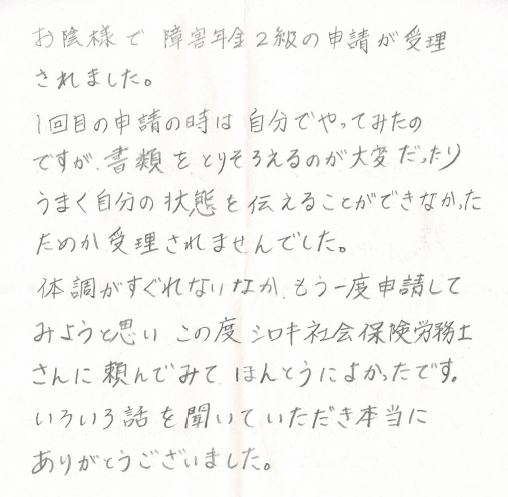 お陰様で 障害年金2級の申請が受理
されました。
1回目の申請の時は 自分でやってみたの
ですが、書類をとりそろえるのが大変だったり
うまく自分の状態を伝えることができなかった
ためか 受理されませんでした。
体調がすぐれないなか、もう一度申請して
みようと思い この度 シロキ社会保険労務士
さんに 頼んでみて ほんとうによかったです。
いろいろ話を聞いていただき本当に
ありがとうございました。